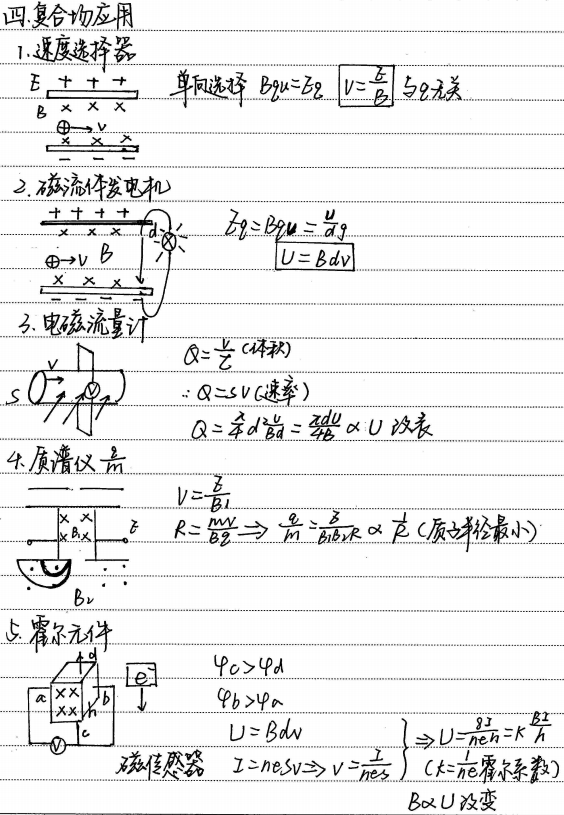 四.复合场应用
1.速度选择器
E + + +
B × × ×
⊕→v
× × ×
− − −
单向选择 Bqv=Eq v=E/B 与q无关
2.磁流体发电机
+ + + +
× × × d
⊕→v B
× × ×
− − − −
Eq=Bqv=U/d q
U=Bdv
3.电磁流量计
v
S V
Q=V/t (体积)
∴Q=Sv(速率)
Q=π/4 d² U/Bd=πdU/4B ∝ U 改表
4.质谱仪 q/m
× ×
× B₁ × E
B₂
V=E/B₁
R=mv/Bq ⟹ q/m=E/B₁B₂R ∝ 1/R (质子半径最小)
5.霍尔元件
d
a ×× b
×× h
c
V
e⁻
↓
φc>φd
φb>φa
U=Bdv
磁传感器 I=nesv⟹v=I/nes
⇒U=BI/neh=K BI/h
(K=1/ne霍尔系数)
B∝U 改变